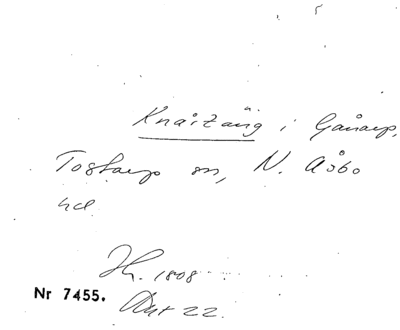 Knärzäng i Gånarp,
Tostarp sn, N. Åsbo
hd
Ih. 1808
Nr 7455. Akt 22.